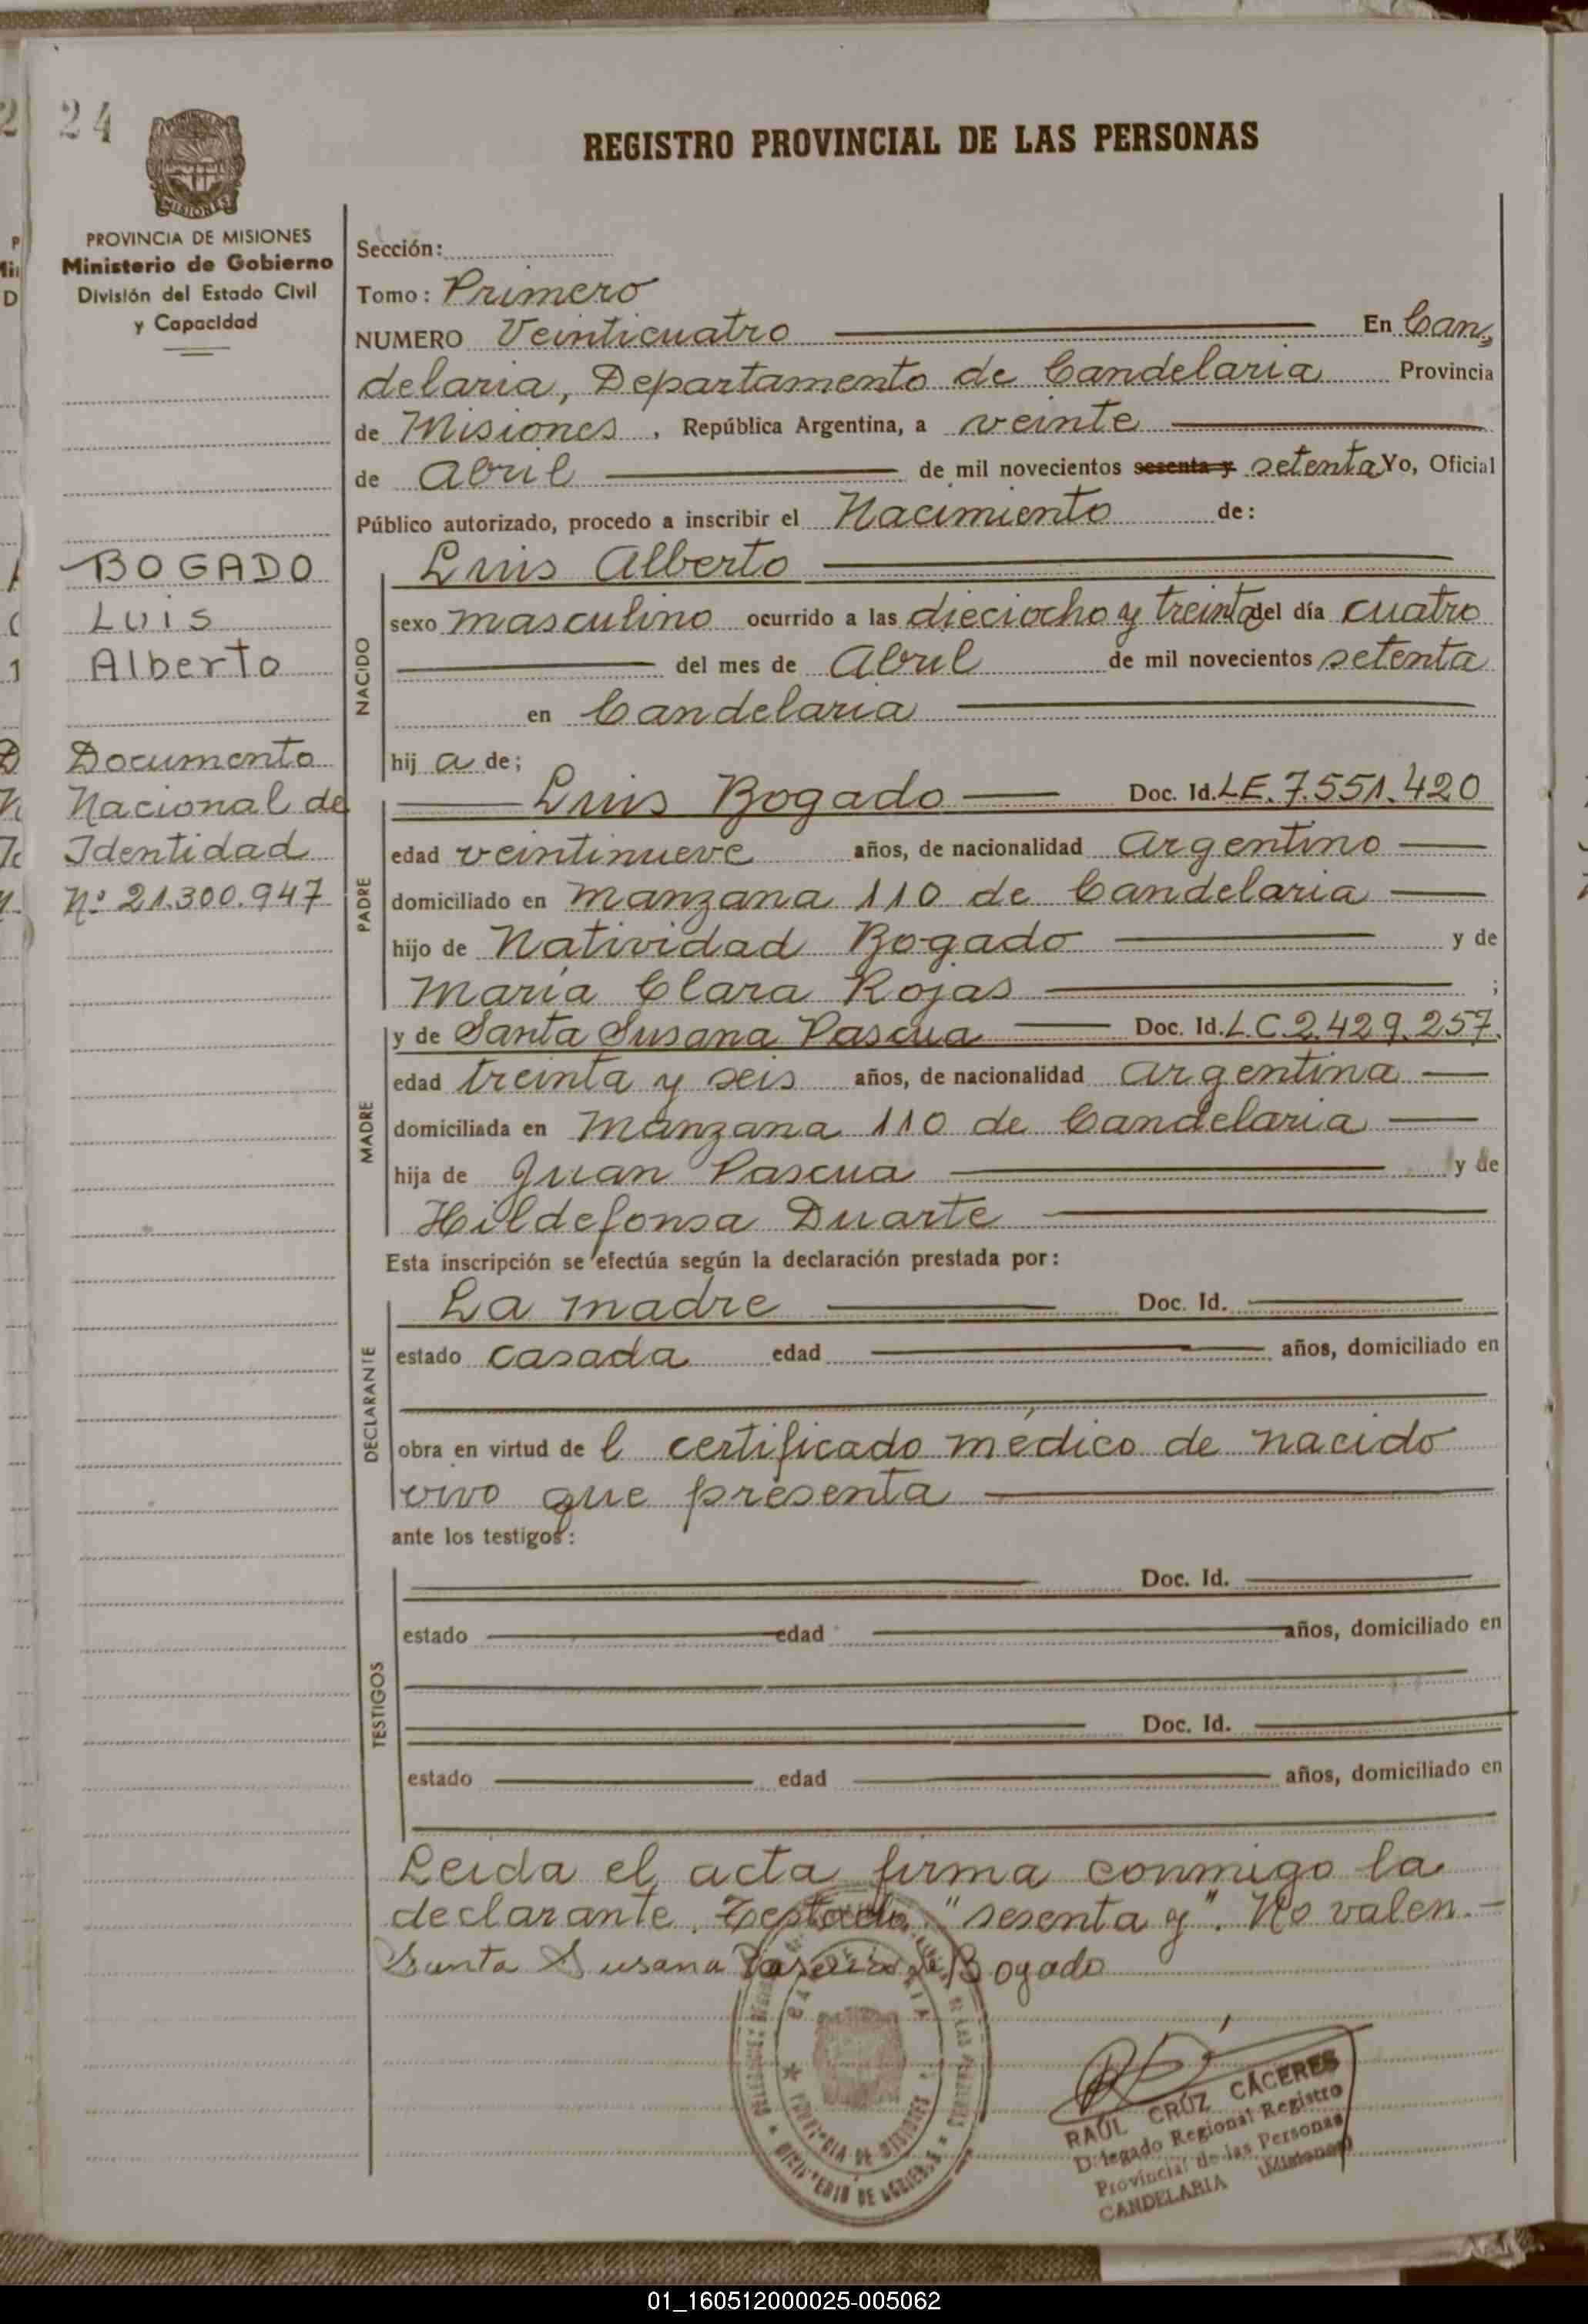 24
REGISTRO PROVINCIAL DE LAS PERSONAS
MISIONES
PROVINCIA DE MISIONES
Ministerio de Gobierno
División del Estado Civil
y Capacidad
BOGADO
Luis
Alberto
Documento
Nacional de
Identidad
Nº 21.300.947
Sección:
Tomo: Primero
NUMERO Veinticuatro En Can
delaria, Departamento de Candelaria Provincia
de Misiones, República Argentina, a veinte
de Abril de mil novecientos sesenta y setenta Yo, Oficial
Público autorizado, procedo a inscribir el Nacimiento de:
NACIDO
Luis Alberto
sexo masculino ocurrido a las dieciocho y treinta del día cuatro
del mes de Abril de mil novecientos setenta
en Candelaria
hij a de;
PADRE
Luis Bogado Doc. Id. LE. 7.551.420
edad veintinueve años, de nacionalidad argentino
domiciliado en manzana 110 de Candelaria
hijo de Natividad Bogado y de
María Clara Rojas ;
MADRE
y de Santa Susana Pascua Doc. Id. L.C 2.429.257.
edad treinta y seis años, de nacionalidad argentina
domiciliada en Manzana 110 de Candelaria
hija de Juan Pascua y de
Hildefonsa Duarte
Esta inscripción se efectúa según la declaración prestada por:
DECLARANTE
La madre Doc. Id.
estado casada edad años, domiciliado en
obra en virtud de l certificado médico de nacido
vivo que presenta
ante los testigos:
TESTIGOS
Doc. Id.
estado edad años, domiciliado en
Doc. Id.
estado edad años, domiciliado en
Leída el acta firma conmigo la
declarante. Testado: "sesenta y". No valen.-
Santa Susana Pascua de Bogado
PROVINCIA DE MISIONES
MINISTERIO DE GOBIERNO
RAÚL CRÚZ CÁCERES
Delegado Regional Registro
Provincial de las Personas
CANDELARIA (Misiones)
01_160512000025-005062